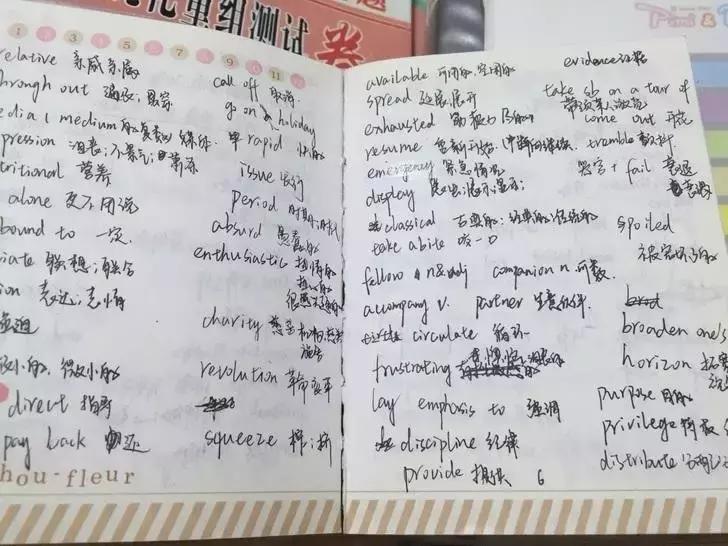 重组测试卷
1 3 5 7 9 11
relative 亲戚亲属
through out 遍及;
media ( medium的复数) 媒体
pression 沮丧;不景气;
tritional 营养
alone 更不用说
bound to 一定
iate 联想;联合
ion 表达;表情
强迫
微小的
direct 指导
pay back 还
call off 取消
go on a holiday
rapid 快的
issue 发行
period 时期;时代
absurd 愚蠢的
enthusiastic 热情的
热心的
charity 慈善
施舍
revolution 革命 变革
squeeze 榨;挤
hou-fleur
available 可用的,空闲的
spread 延展,展开
exhausted 筋疲力尽的
resume 重新开始
emergency 紧急情况
display 展出;展示;显示;
classical 古典的;经典的;传统的
take a bite 咬一口
fellow n&adj companion n 可数
accompany v. partner 生意伙伴
circulate 循环
frustrating
lay emphasis to 强调
discipline 纪律
provide 提供 6
evidence 证据
take sb on a tour of
带领某人游览
come out 开花
tremble 颤抖
fail
spoiled
被宠坏的
broaden one's
horizon 拓宽
purpose 目的
privilege 特权
distribute 分配